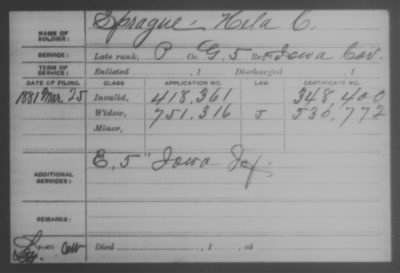 NAME OF SOLDIER: Sprague, Hila C.
SERVICE: Late rank, P Co. G. 5 Reg't Iowa Cav.
TERM OF SERVICE: Enlisted , 1 Discharged , 1
DATE OF FILING. CLASS APPLICATION NO. LAW. CERTIFICATE NO.
1881 Mar. 25 Invalid, 418,361 348,400
Widow, 751,316 J 530,772
Minor,
ADDITIONAL SERVICES: E. 5" Iowa Inf.
REMARKS:
Died , 1 , at